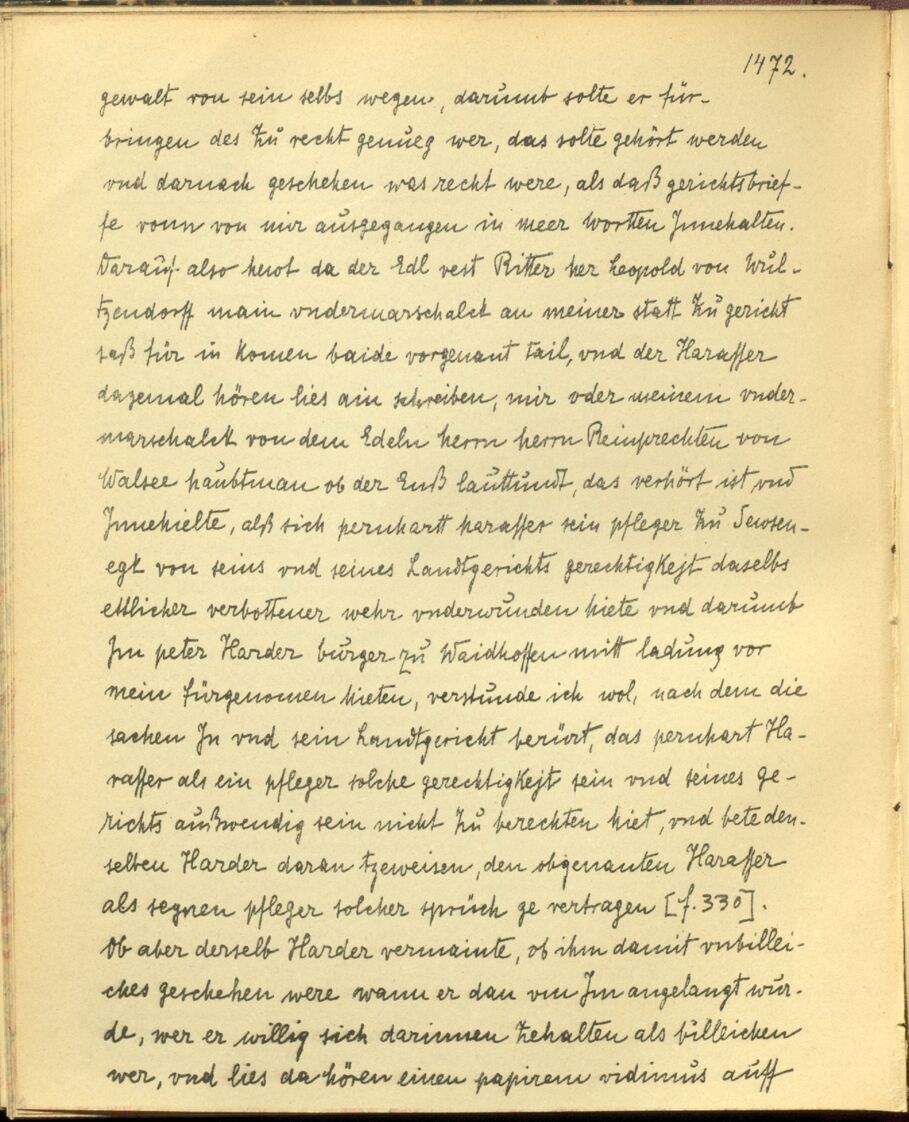 1472.
gewalt von sein selbs wegen, darumb solte er für-
bringen des zu recht genueg wer, das solte gehört werden
vnd darnach geschehen was recht were, als daß gerichtsbrief-
fe vonn von mir außgegangen in meer wortten Innehalten.
Darauf also heut da der Edl vest Ritter her Leopold von Wul-
tzendorff main vndermarschalck an meiner statt zu gericht
saß für in komen baide vorgenant tail, vnd der Haraffer
dazemal hören lies ain schreiben, mir oder meinem vnder-
marschalck von dem Edeln herrn herrn Reinprechten von
Walsee haubtman ob der Enß lauttundt, das verhört ist vnd
Innehielte, alß sich pernhartt haraffer sein pfleger zu Sewsen-
egk von seins vnd seines Landtgerichts gerechtigkejt daselbs
ettlicher verbottener wehr vnderwunden hiete vnd darumb
Im peter Harder burger zu Waidhoffen mitt ladung vor
mein fürgenomen hieten, verstunde ich wol, nach dem die
sachen In vnd sein Landtgericht berürt, das pernhart Ha-
raffer als ein pfleger solche gerechtigkejt sein vnd seines ge-
richts außwendig sein nicht zu berechten hiet, vnd bete den-
selben Harder daran tzeweisen, den obgenanten Haraffer
als seynen pfleger solcher sprüch ge vertragen [f. 330].
Ob aber derselb Harder vermainte, ob ihm damit vnbillei-
ches geschehen were wann er dan von Im angelangt wur-
de, wer er willig sich darinnen zehalten als billeichen
wer, vnd lies da hören einen papirem vidimus auff